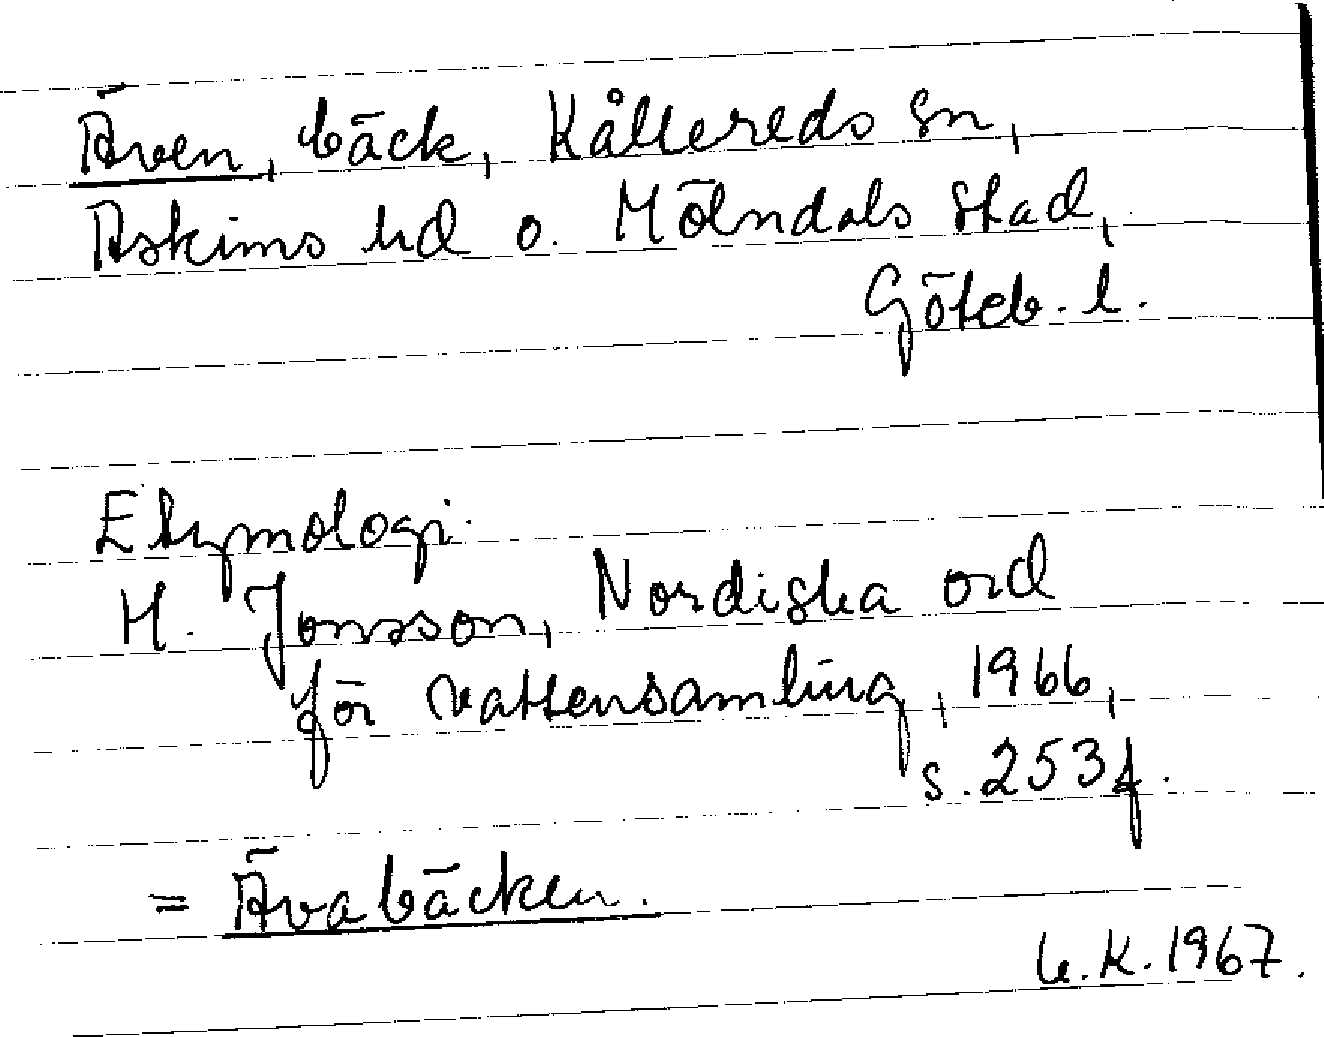 Även, bäck, Kållereds sn,
Askims hd o. Mölndals stad,
Göteb. l.
Etymologi:
H. Jonsson, Nordiska ord
för vattensamling, 1966,
s. 253 f.
= Ävabäcken.
K. 1967.